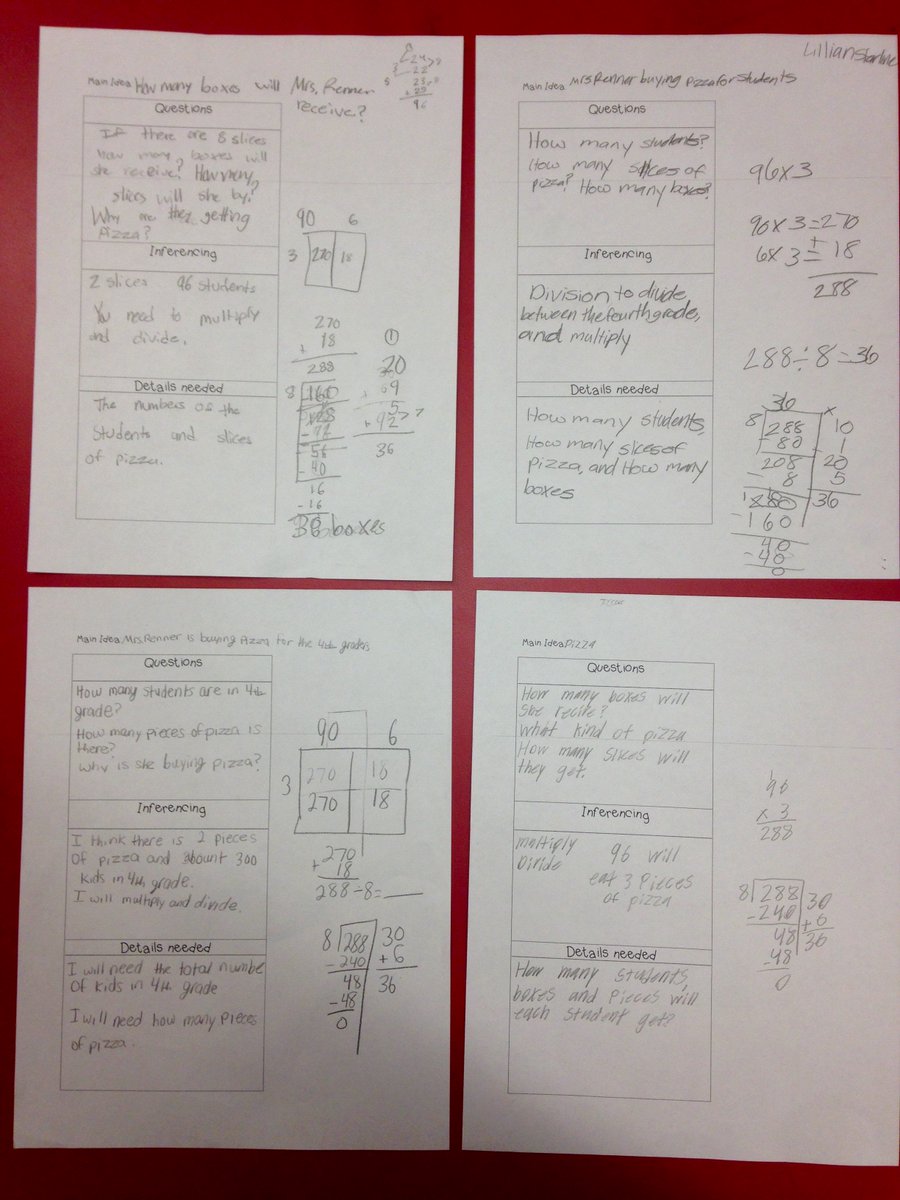 Main Idea How many boxes will Mrs. Renner
receive?
24
22
25
+ 25
96
Questions
If there are 8 slices
How many boxes will
she receive? How many
slices will she by?
Why are they getting
Pizza?
Inferencing
2 slices 96 students
You need to multiply
and divide.
Details needed
The numbers of the
Students and slices
of pizza.
90 6
3 270 18
270
+ 18
288
8
- 72
56
- 40
16
- 16
0
1
20
9
5
+ 2
36
36 boxes
Lillian
Main Idea Mrs Renner buying Pizza for students
Questions
How many students?
How many slices of
pizza? How many boxes?
Inferencing
Division to divide
between the fourth grade,
and multiply
Details needed
How many students,
How many slices of
Pizza, and How many
boxes
96x3
90x3=270
+
6x3= 18
288
288÷8=36
36 x
8 288 10
- 80 1
208 20
- 8 5
200 36
- 160
40
- 40
0
Main Idea Mrs. Renner is buying Pizza for the 4th graders
Questions
How many students are in 4th
grade?
How many pieces of pizza is
there?
Why is she buying pizza?
Inferencing
I think there is 2 pieces
of pizza and about 300
kids in 4th grade.
I will multiply and divide.
Details needed
I will need the total numbe
of kids in 4th grade
I will need how many pieces
of pizza.
90 6
270 18
3
270 18
270
+ 18
288÷8=
8 288 30
- 240 + 6
48 36
- 48
0
Main Idea Pizza
Questions
How many boxes will
she recite?
What kind of pizza
How many slices will
they get.
Inferencing
Multiply
Divide 96 will
eat 3 Pieces
of pizza
Details needed
How many students,
boxes and pieces will
each student get?
1
96
x 3
288
8 288 30
- 240 + 6
48 36
- 48
0